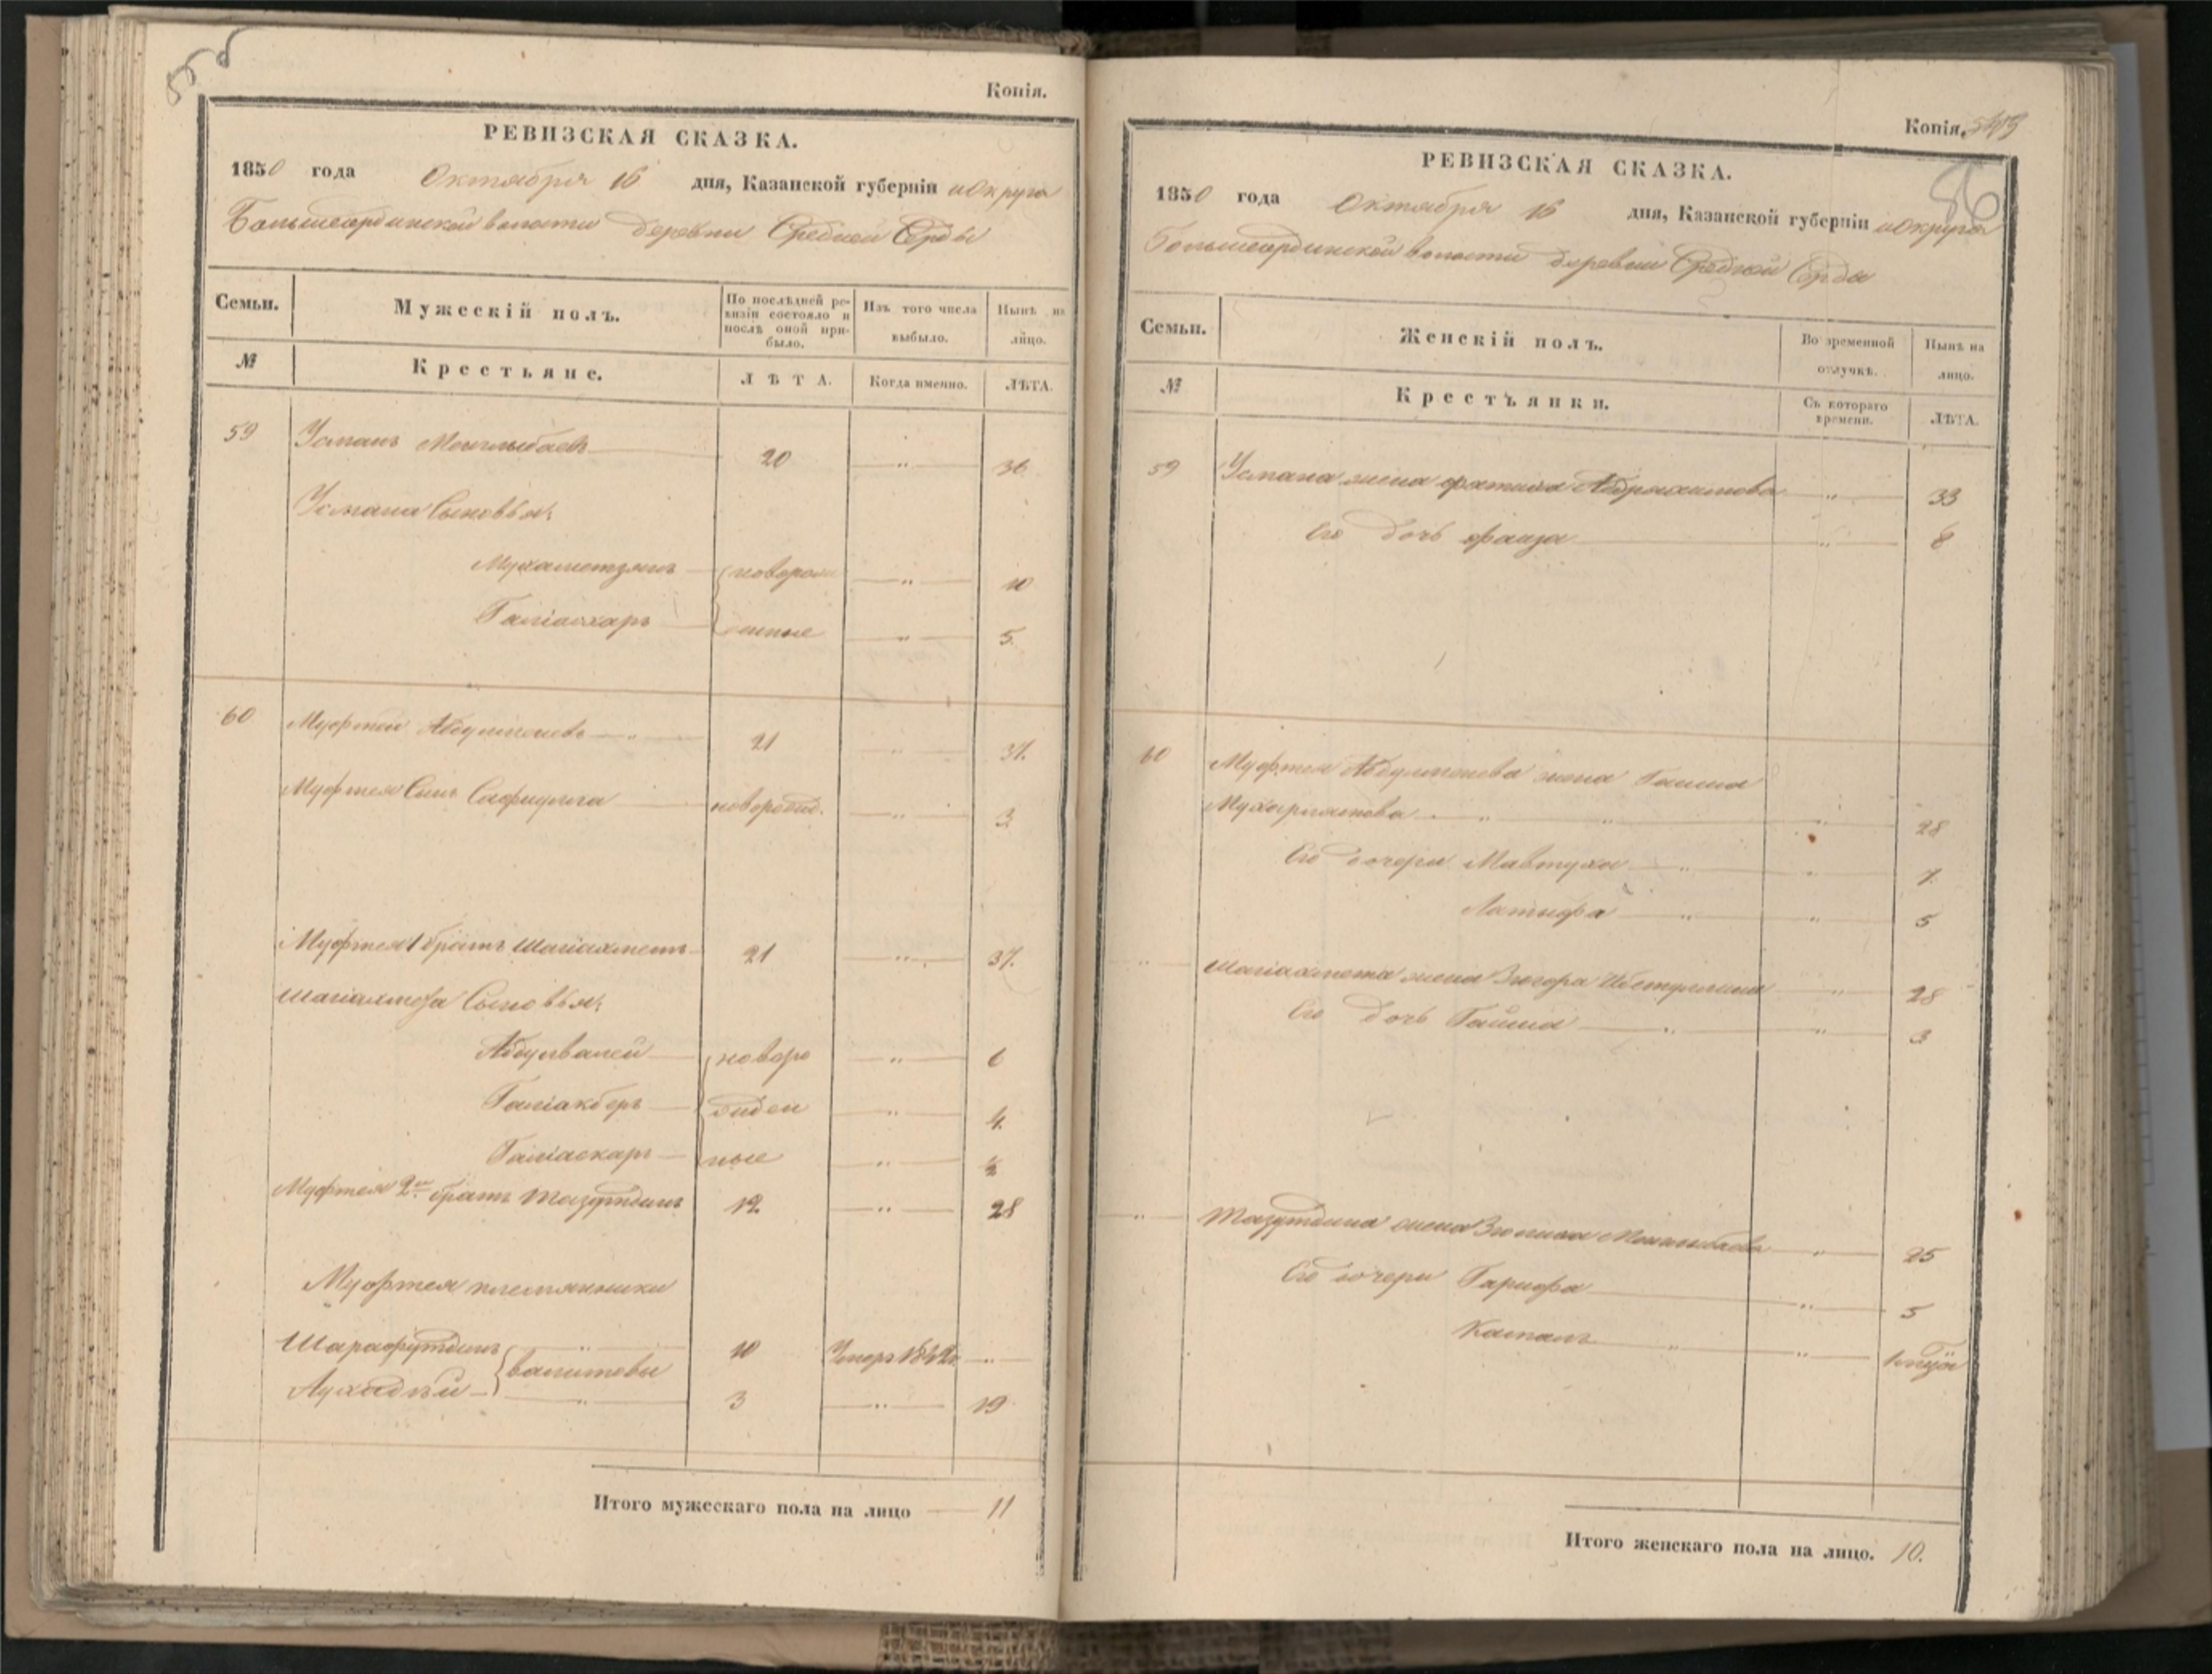 Копія.
РЕВИЗСКАЯ СКАЗКА.
1850 года Октября 16 дня, Казанской губерніи и Округа
Большеардинской волости деревни Средней Ерды
Семьи. Мужескій полъ. По послѣдней ревизіи состояло и послѣ оной прибыло. Изъ того числа выбыло. Нынѣ на лицо.
№ Крестьяне. ЛѢТА. Когда именно. ЛѢТА.
59 Усманъ 20 " 36
Усмана Сыновья:
Мухаметзянъ новорож " 10
Галіаскаръ денные " 5.
60 Муфтей " 21 " 37.
Муфтея Сынъ Сафиулла новорожд. " 3
Муфтея 1 братъ Шагіахметъ 21 " 37.
Шагіахмета Сыновья:
Абдулвалей новоро " 6
Галіакберъ жден " 4.
Галіаскаръ ные " ½
Муфтея 2й братъ Тазутдинъ 12 " 28
Муфтея племянники
Шарафутдинъ " 10 Умеръ "
Валитовы
" 3 " 19
Итого мужескаго пола на лицо 11
Копія. 543
86
РЕВИЗСКАЯ СКАЗКА.
1850 года Октября 16 дня, Казанской губерніи и Округа
Большеардинской волости деревни Средней Ерды
Семьи. Женскій полъ. Во временной отлучкѣ. Нынѣ на лицо.
№ Крестьянки. Съ котораго времени. ЛѢТА.
59 Усмана жена Фатиха Абдрахимова " 33
Его дочь Фаиза " 8
60 Муфтея жена
" " " 28
Его дочери Мавтуха " " 7.
Латыфа " " 5
" Шагіахмета жена Зюгора " 28
Его дочь " " 3
" Тазутдина жена " 25
Его дочери Гарифа " 5
" "
Итого женскаго пола на лицо. 10.